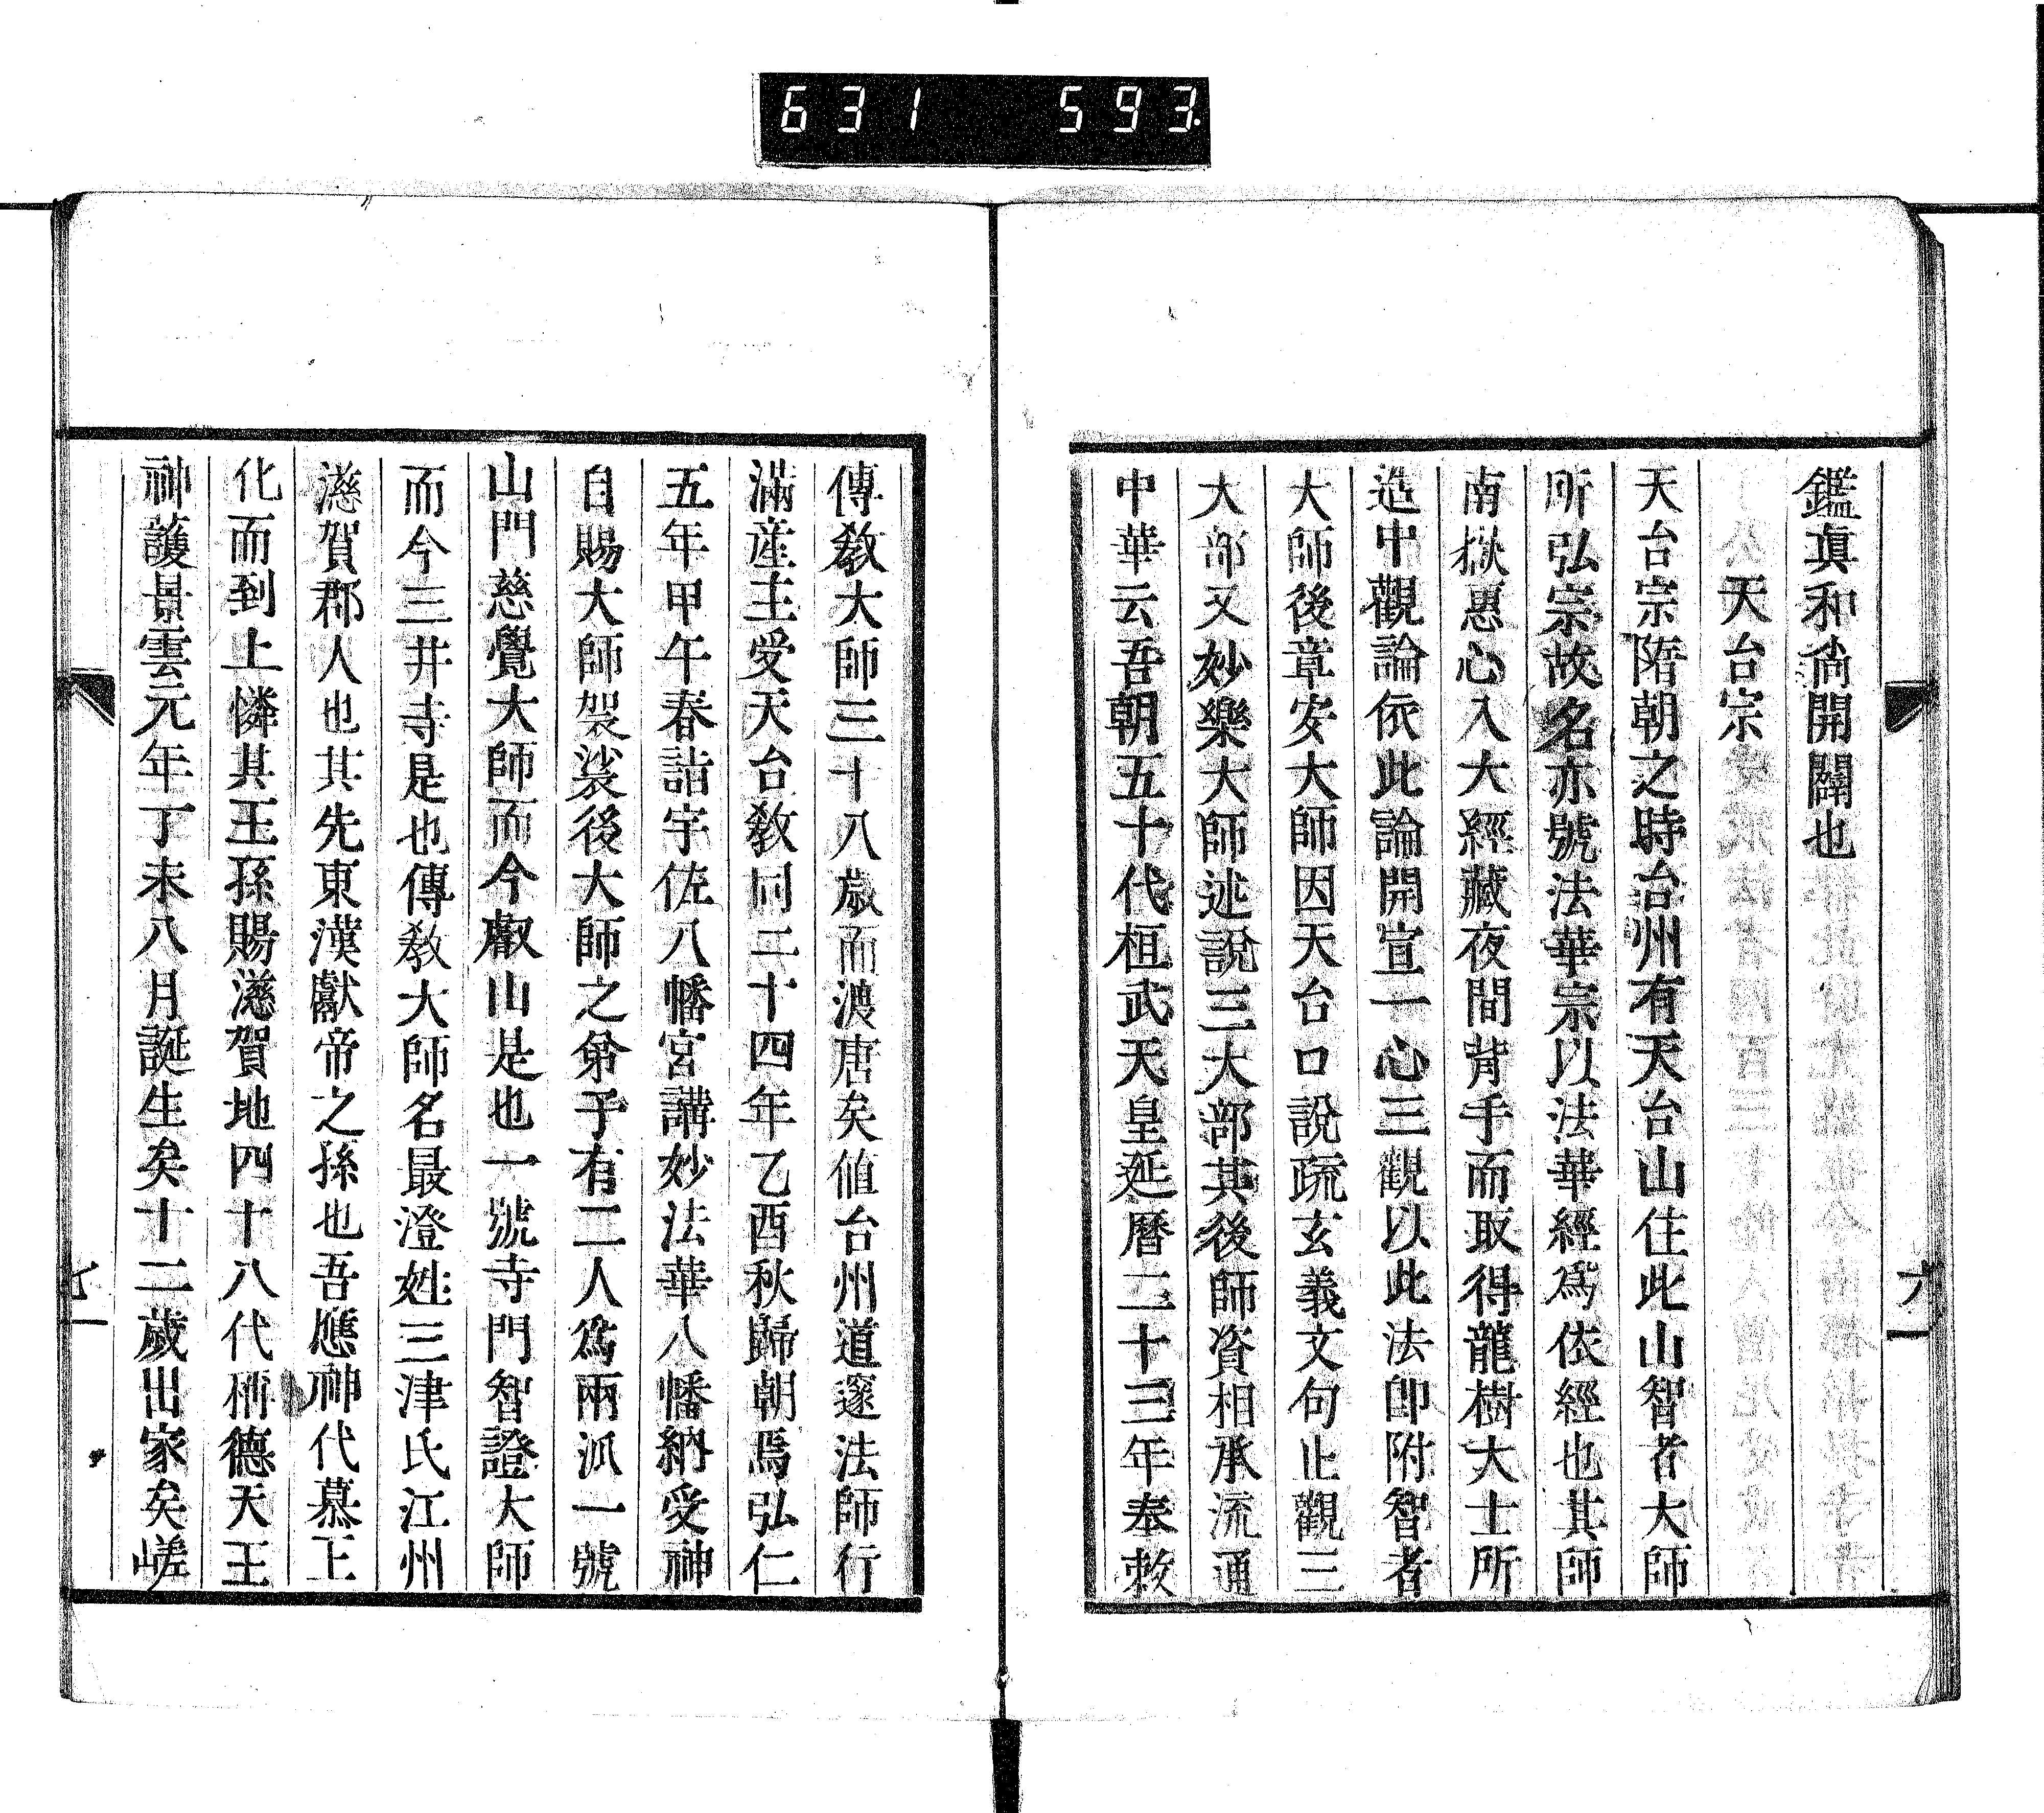 631 593
鑑真和尚開闢也
天台宗
天台宗隋朝之時台州有天台山住此山智者大師
所弘宗故名亦號法華宗以法華經爲依經也其師
南嶽惠心入大經藏夜間背手而取得龍樹大士所
造中觀論依此論開宣一心三觀以此法卽附智者
大師後章安大師因天台口說疏玄義文句止觀三
大部又妙樂大師述說三大部其後師資相承流通
中華云吾朝五十代桓武天皇延曆二十三年奉敕
六
傳教大師三十八歲而渡唐矣値台州道邃法師行
滿座主受天台教同二十四年乙酉秋歸朝焉弘仁
五年甲午春詣宇佐八幡宮講妙法華八幡納受神
自賜大師袈裟後大師之弟子有二人爲兩派一號
山門慈覺大師而今叡山是也一號寺門智證大師
而今三井寺是也傳教大師名最澄姓三津氏江州
滋賀郡人也其先東漢獻帝之孫也吾應神代慕王
化而到上憐其王孫賜滋賀地四十八代稱德天王
神護景雲元年丁未八月誕生矣十二歲出家矣嵯
七